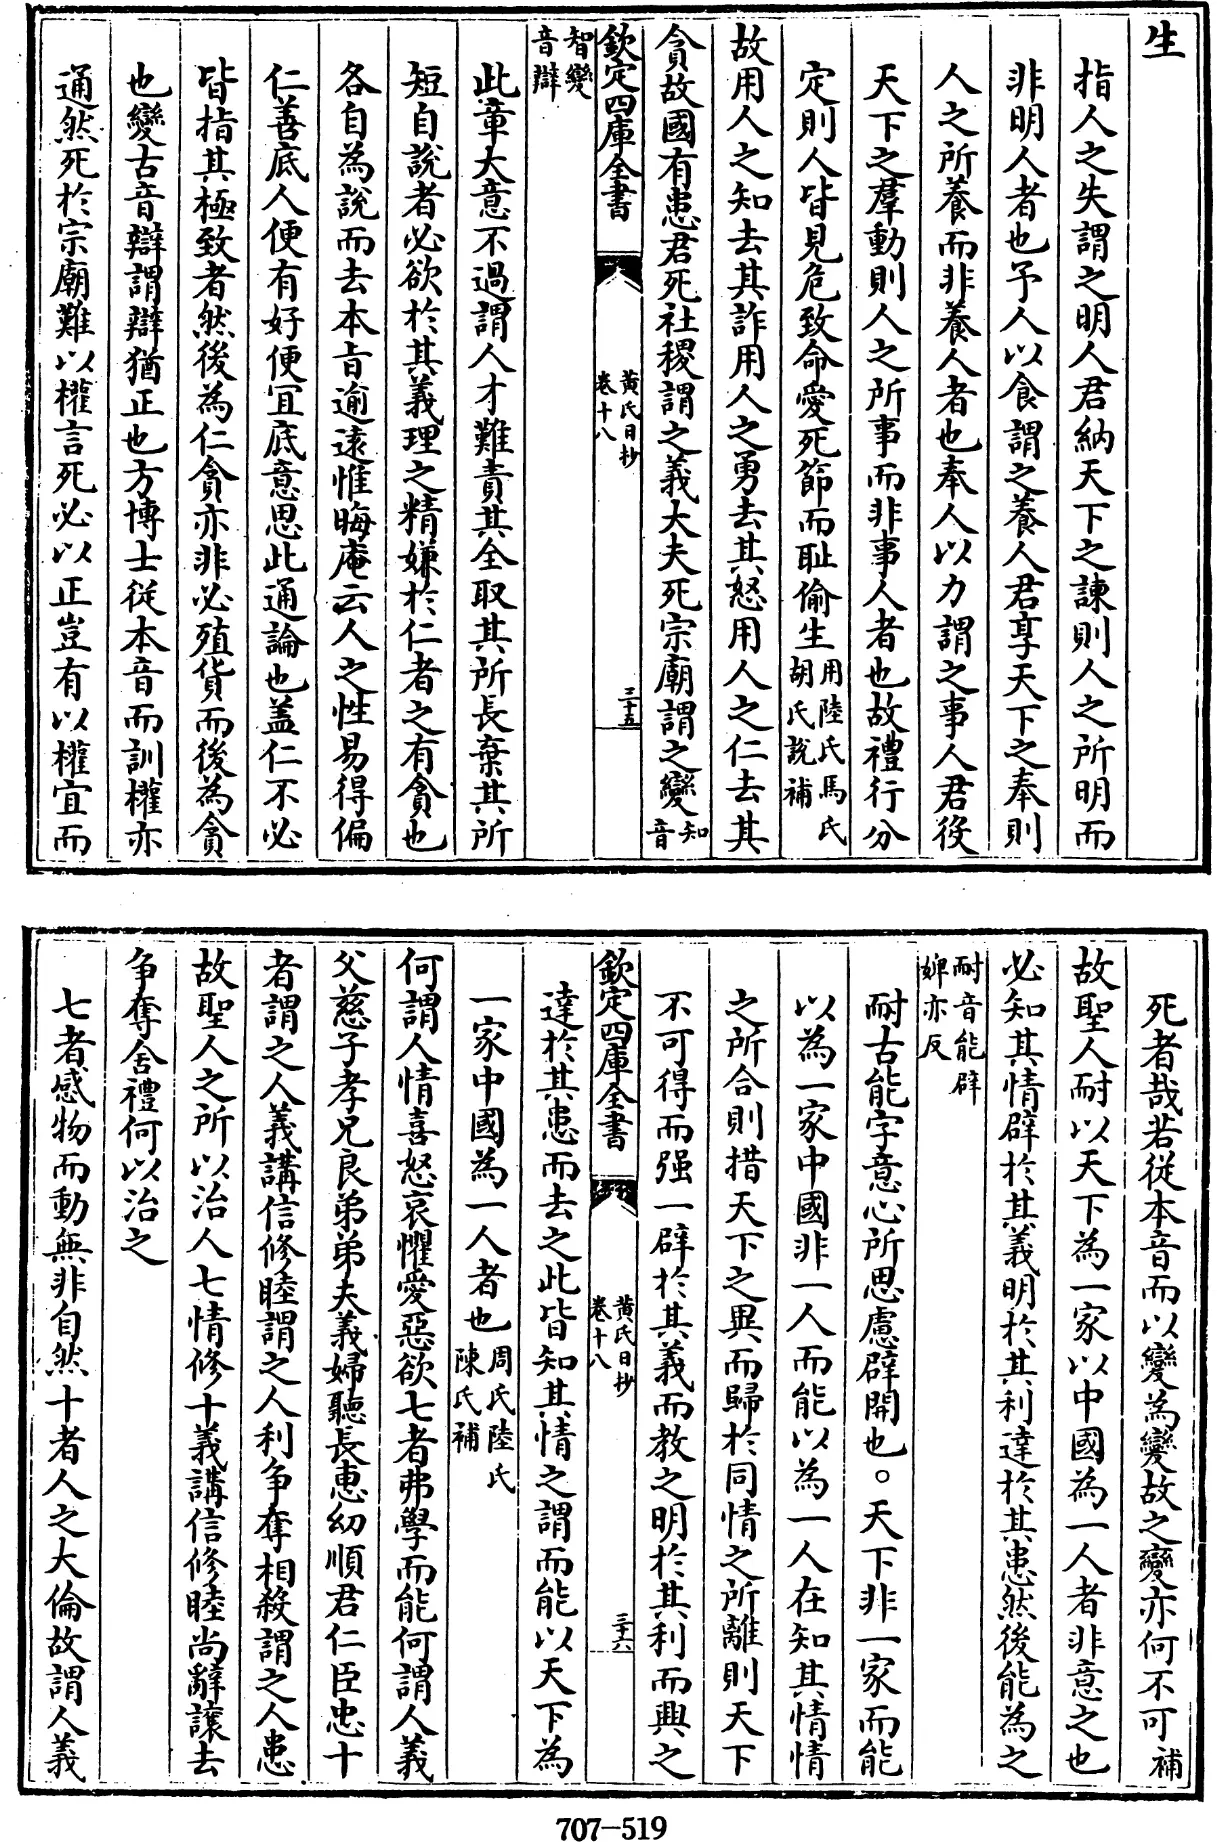 生
指人之失謂之明人君納天下之諫則人之所明而
非明人者也予人以食謂之養人君享天下之奉則
人之所養而非養人者也奉人以力謂之事人君役
天下之羣動則人之所事而非事人者也故禮行分
定則人皆見危致命愛死節而耻偷生用陸氏馬氏胡氏說補
故用人之知去其詐用人之勇去其怒用人之仁去其
貪故國有患君死社稷謂之義大夫死宗廟謂之變知音
欽定四庫全書
黃氏日抄
卷十八
三十五
智變
音辯
此章大意不過謂人才難責其全取其所長棄其所
短自說者必欲於其義理之精嫌於仁者之有貪也
各自為說而去本旨逾遠惟晦庵云人之性易得偏
仁善底人便有好便宜底意思此通論也盖仁不必
皆指其極致者然後為仁貪亦非必殖貨而後為貪
也變古音辯謂辯猶正也方博士從本音而訓權亦
通然死於宗廟難以權言死必以正豈有以權宜而
死者哉若從本音而以變為變故之變亦何不可補
故聖人耐以天下為一家以中國為一人者非意之也
必知其情辟於其義明於其利達於其患然後能為之
耐音能辟
婢亦反
耐古能字意心所思慮辟開也。天下非一家而能
以為一家中國非一人而能以為一人在知其情情
之所合則措天下之異而歸於同情之所離則天下
不可得而强一辟於其義而教之明於其利而興之
欽定四庫全書
黃氏日抄
卷十八
三十六
達於其患而去之此皆知其情之謂而能以天下為
一家中國為一人者也周氏陸氏陳氏補
何謂人情喜怒哀懼愛惡欲七者弗學而能何謂人義
父慈子孝兄良弟弟夫義婦聽長惠幼順君仁臣忠十
者謂之人義講信修睦謂之人利爭奪相殺謂之人患
故聖人之所以治人七情修十義講信修睦尚辭讓去
爭奪舍禮何以治之
七者感物而動無非自然十者人之大倫故謂人義
707-519